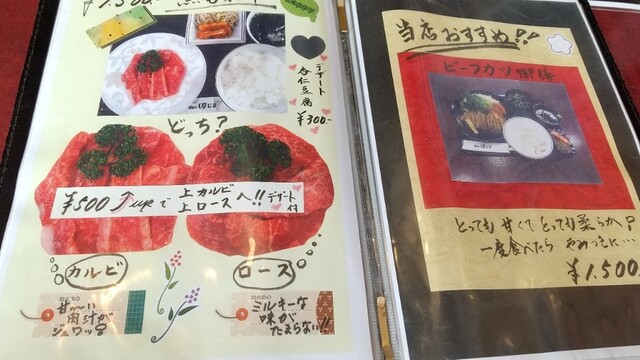 デザート
杏仁豆腐
¥300-
どっち?
¥500 upで 上カルビ
上ロースへ!! デザート付
カルビ
ロース
甘〜い
肉汁が
ジュワッ
ミルキーな
味が
たまらない!!
当店おすすめ!!
ビーフカツ御膳
とっても甘くてとっても柔らか?
一度食べたら やめつきに…
¥1.500